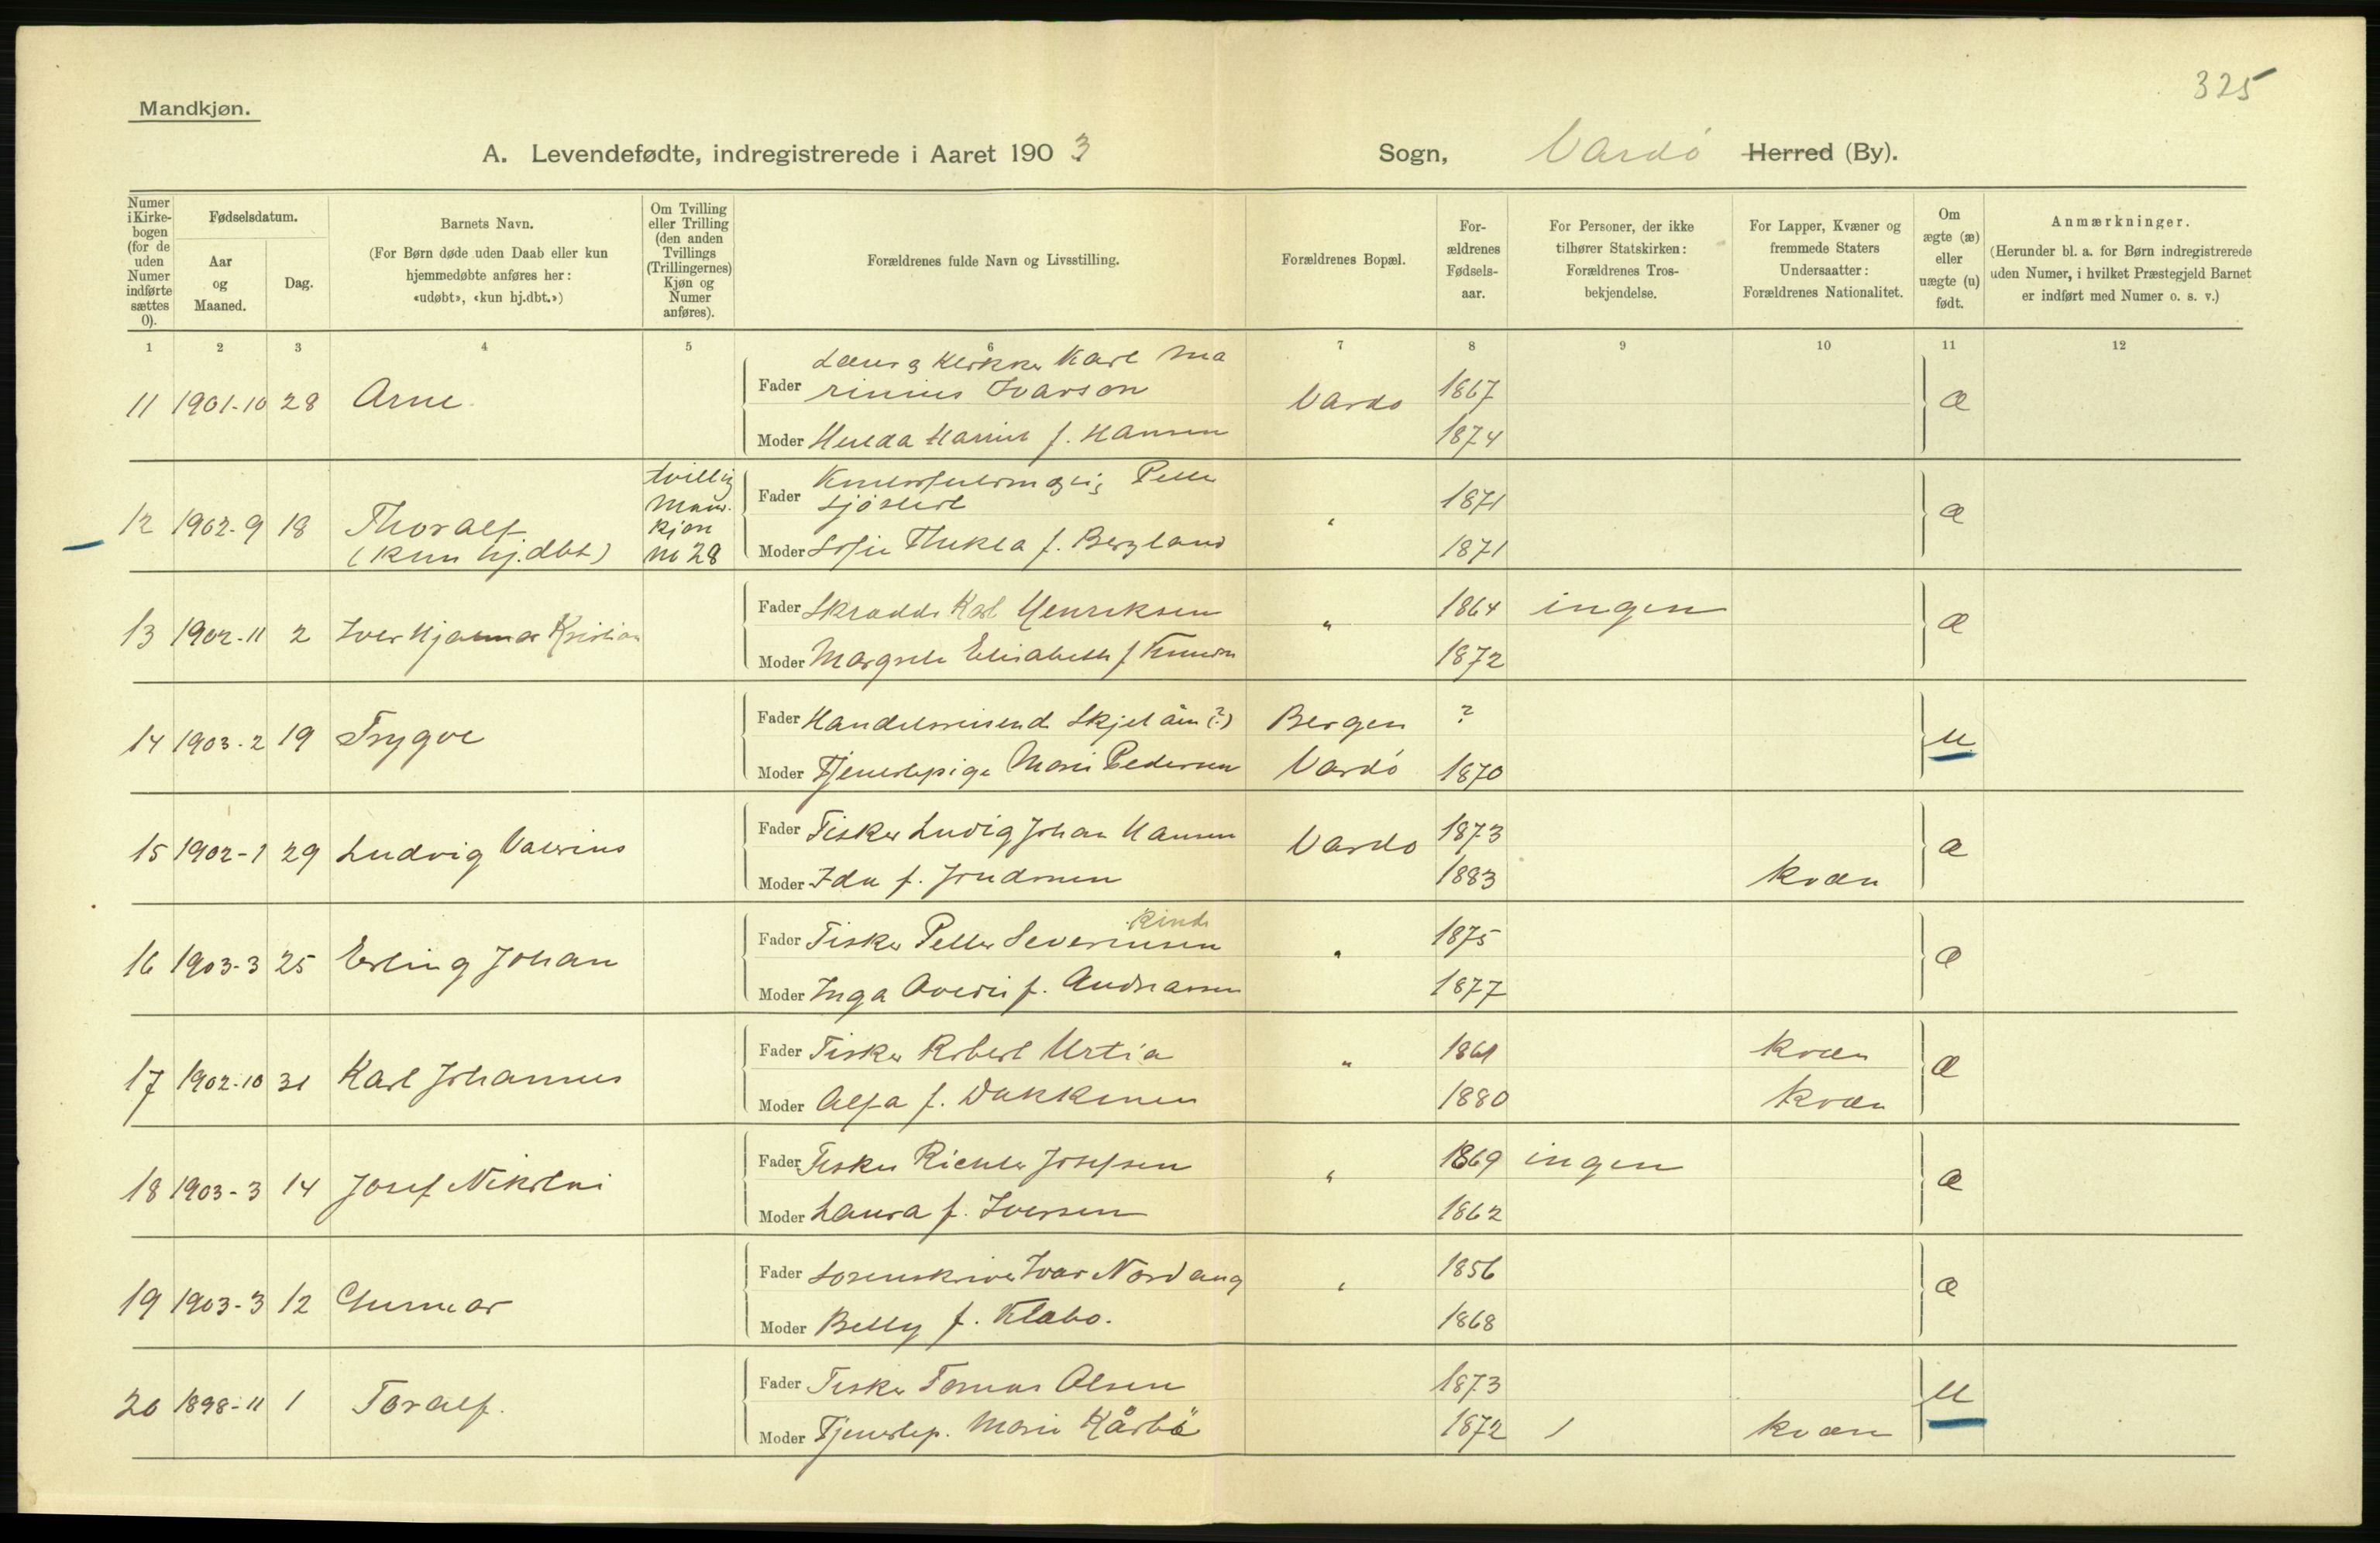 325
Mandkjøn.
A. Levendefødte, indregistrerede i Aaret 1903 Sogn, Vardö Herred (By).
Numer i Kirkebogen (for de uden Numer indførte sættes 0).
Fødselsdatum.
Aar og Maaned.
Dag.
Barnets Navn.
(For Børn døde uden Daab eller kun hjemmedøbte anføres her: «udøbt», «kun hj.dbt.»)
Om Tvilling eller Trilling (den anden Tvillings (Trillingernes) Kjøn og Numer anføres).
Forældrenes fulde Navn og Livsstilling.
Forældrenes Bopæl.
Forældrenes Fødselsaar.
For Personer, der ikke tilhører Statskirken: Forældrenes Trosbekjendelse.
For Lapper, Kvæner og fremmede Staters Undersaatter: Forældrenes Nationalitet.
Om ægte (æ) eller uægte (u) født.
Anmærkninger.
(Herunder bl. a. for Børn indregistrerede uden Numer, i hvilket Præstegjeld Barnet er indført med Numer o. s. v.)
1 2 3 4 5 6 7 8 9 10 11 12
11 1901-10 28 Arne Fader Karl Marinius Ivarson Vardo 1867 æ
Moder Marie f. Hansen 1874
12 1902-9 18 Thoralf (kun hj.dbt) tvilling Mandkjøn no 28 Fader Petter Sjöstedt " 1871 æ
Moder Sofie Thekla f. Bergland 1871
13 1902-11 2 Iver Hjalmar Kristian Fader Skrædder Karl Henriksen " 1864 ingen æ
Moder Margrete Elisabeth f. 1872
14 1903-2 19 Trygve Fader Handelsreisende (?) Bergen ? u
Moder Tjenestepige Marie Pedersen Vardö 1870
15 1902-1 29 Ludvig Valerius Fader Fisker Ludvig Johan Hansen Vardo 1873 æ
Moder Ida f. 1883 kvæn
16 1903-3 25 Erling Johan Fader Fisker Petter Severinsen " 1875 æ
Moder Inga f. Andreassen 1877
17 1902-10 31 Karl Johannes Fader Fisker Robert Urtia " 1861 kvæn æ
Moder f. 1880 kvæn
18 1903-3 14 Josef Nikolai Fader Fisker Josefsen " 1869 ingen æ
Moder Laura f. Iversen 1862
19 1903-3 12 Gunnar Fader Sorenskriver Ivar Nordang " 1856 æ
Moder Betty f. Klæbo. 1868
20 1898-11 1 Toralf. Fader Fisker Tomas Olsen 1873 u
Moder Tjenestep. Marie 1872 / kvæn